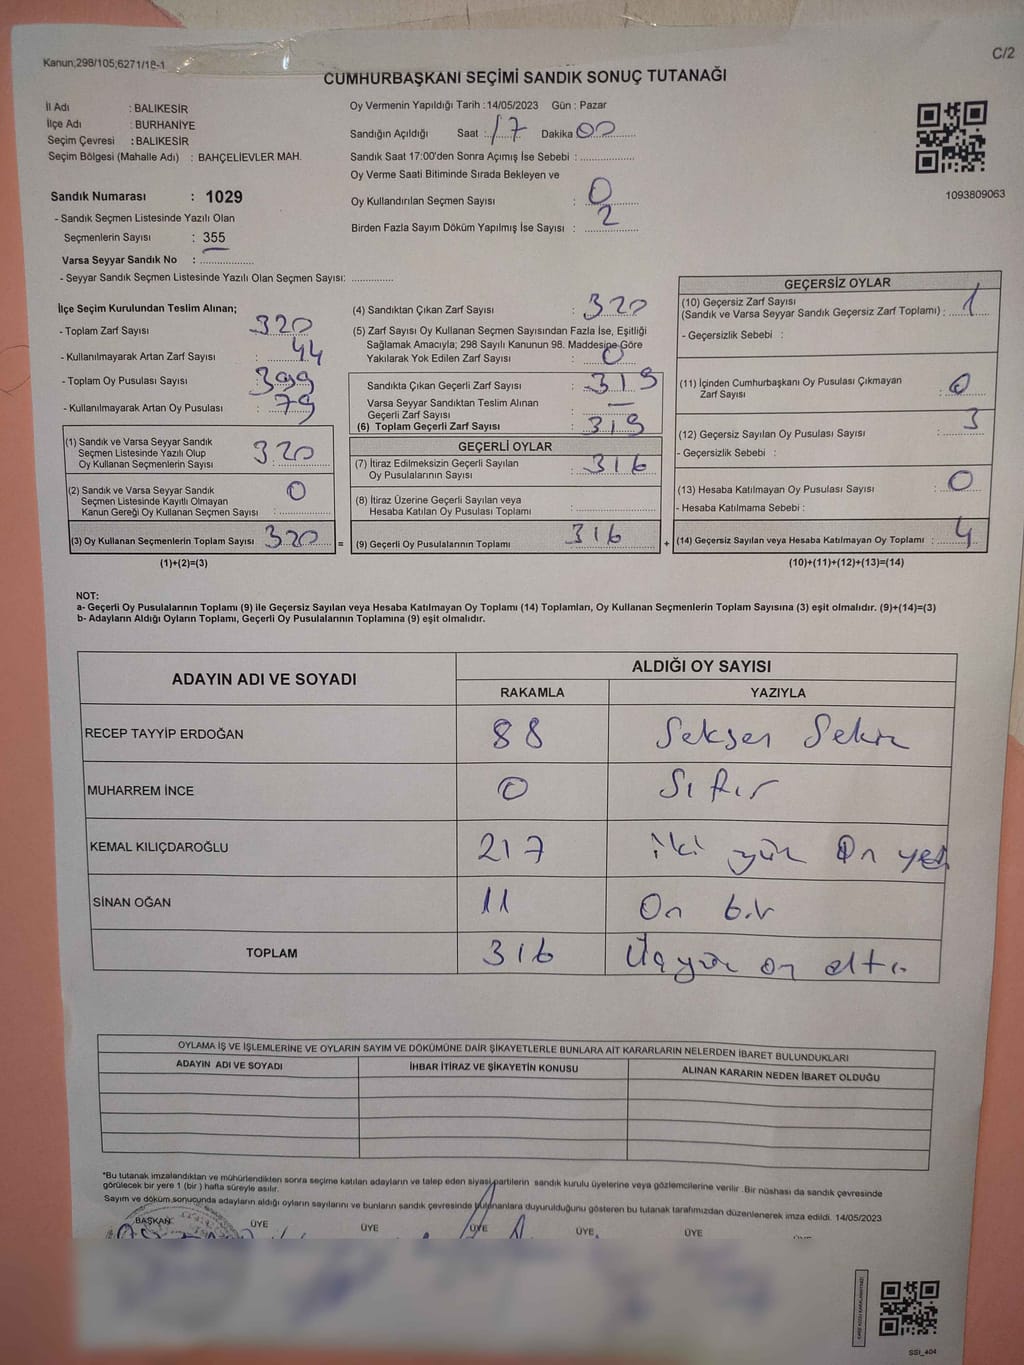 Kanun;298/105;6271/18-1
C/2
CUMHURBAŞKANI SEÇİMİ SANDIK SONUÇ TUTANAĞI
İl Adı : BALIKESİR
İlçe Adı : BURHANİYE
Seçim Çevresi : BALIKESİR
Seçim Bölgesi (Mahalle Adı) : BAHÇELİEVLER MAH.
Sandık Numarası : 1029
- Sandık Seçmen Listesinde Yazılı Olan
Seçmenlerin Sayısı : 355
Varsa Seyyar Sandık No : ..................
- Seyyar Sandık Seçmen Listesinde Yazılı Olan Seçmen Sayısı: ..............
Oy Vermenin Yapıldığı Tarih : 14/05/2023 Gün : Pazar
Sandığın Açıldığı Saat : 17 Dakika 00
Sandık Saat 17:00'den Sonra Açımış İse Sebebi : ..................
Oy Verme Saati Bitiminde Sırada Bekleyen ve
Oy Kullandırılan Seçmen Sayısı : 0
Birden Fazla Sayım Döküm Yapılmış İse Sayısı : 2
1093809063
İlçe Seçim Kurulundan Teslim Alınan;
- Toplam Zarf Sayısı : 320
- Kullanılmayarak Artan Zarf Sayısı : 44
- Toplam Oy Pusulası Sayısı : 399
- Kullanılmayarak Artan Oy Pusulası : 79
(1) Sandık ve Varsa Seyyar Sandık
Seçmen Listesinde Yazılı Olup
Oy Kullanan Seçmenlerin Sayısı : 320
(2) Sandık ve Varsa Seyyar Sandık
Seçmen Listesinde Kayıtlı Olmayan
Kanun Gereği Oy Kullanan Seçmen Sayısı : 0
(3) Oy Kullanan Seçmenlerin Toplam Sayısı : 320
(1)+(2)=(3)
(4) Sandıktan Çıkan Zarf Sayısı : 320
(5) Zarf Sayısı Oy Kullanan Seçmen Sayısından Fazla İse, Eşitliği
Sağlamak Amacıyla; 298 Sayılı Kanunun 98. Maddesine Göre
Yakılarak Yok Edilen Zarf Sayısı : 0
Sandıkta Çıkan Geçerli Zarf Sayısı : 319
Varsa Seyyar Sandıktan Teslim Alınan
Geçerli Zarf Sayısı : —
(6) Toplam Geçerli Zarf Sayısı : 319
GEÇERLİ OYLAR
(7) İtiraz Edilmeksizin Geçerli Sayılan
Oy Pusulalarının Sayısı : 316
(8) İtiraz Üzerine Geçerli Sayılan veya
Hesaba Katılan Oy Pusulası Toplamı : ..................
= (9) Geçerli Oy Pusulalarının Toplamı : 316
GEÇERSİZ OYLAR
(10) Geçersiz Zarf Sayısı
(Sandık ve Varsa Seyyar Sandık Geçersiz Zarf Toplamı) : 1
- Geçersizlik Sebebi :
(11) İçinden Cumhurbaşkanı Oy Pusulası Çıkmayan
Zarf Sayısı : 0
(12) Geçersiz Sayılan Oy Pusulası Sayısı : 3
- Geçersizlik Sebebi :
(13) Hesaba Katılmayan Oy Pusulası Sayısı : 0
- Hesaba Katılmama Sebebi :
+ (14) Geçersiz Sayılan veya Hesaba Katılmayan Oy Toplamı : 4
(10)+(11)+(12)+(13)=(14)
NOT:
a- Geçerli Oy Pusulalarının Toplamı (9) ile Geçersiz Sayılan veya Hesaba Katılmayan Oy Toplamı (14) Toplamları, Oy Kullanan Seçmenlerin Toplam Sayısına (3) eşit olmalıdır. (9)+(14)=(3)
b- Adayların Aldığı Oyların Toplamı, Geçerli Oy Pusulalarının Toplamına (9) eşit olmalıdır.
ADAYIN ADI VE SOYADI
ALDIĞI OY SAYISI
RAKAMLA YAZIYLA
RECEP TAYYİP ERDOĞAN 88 Seksen Sekiz
MUHARREM İNCE 0 Sıfır
KEMAL KILIÇDAROĞLU 217 iki yüz On yedi
SİNAN OĞAN 11 On bir
TOPLAM 316 Üç yüz on altı
OYLAMA İŞ VE İŞLEMLERİNE VE OYLARIN SAYIM VE DÖKÜMÜNE DAİR ŞİKAYETLERLE BUNLARA AİT KARARLARIN NELERDEN İBARET BULUNDUKLARI
ADAYIN ADI VE SOYADI İHBAR İTİRAZ VE ŞİKAYETİN KONUSU ALINAN KARARIN NEDEN İBARET OLDUĞU
*Bu tutanak imzalandıktan ve mühürlendikten sonra seçime katılan adayların ve talep eden siyasi partilerin sandık kurulu üyelerine veya gözlemcilerine verilir .Bir nüshası da sandık çevresinde
görülecek bir yere 1 (bir ) hafta süreyle asılır.
Sayım ve döküm sonucunda adayların aldığı oyların sayılarını ve bunların sandık çevresinde bulunanlara duyurulduğunu gösteren bu tutanak tarafımızdan düzenlenerek imza edildi. 14/05/2023
BAŞKAN ÜYE ÜYE ÜYE ÜYE ÜYE
SSI_404